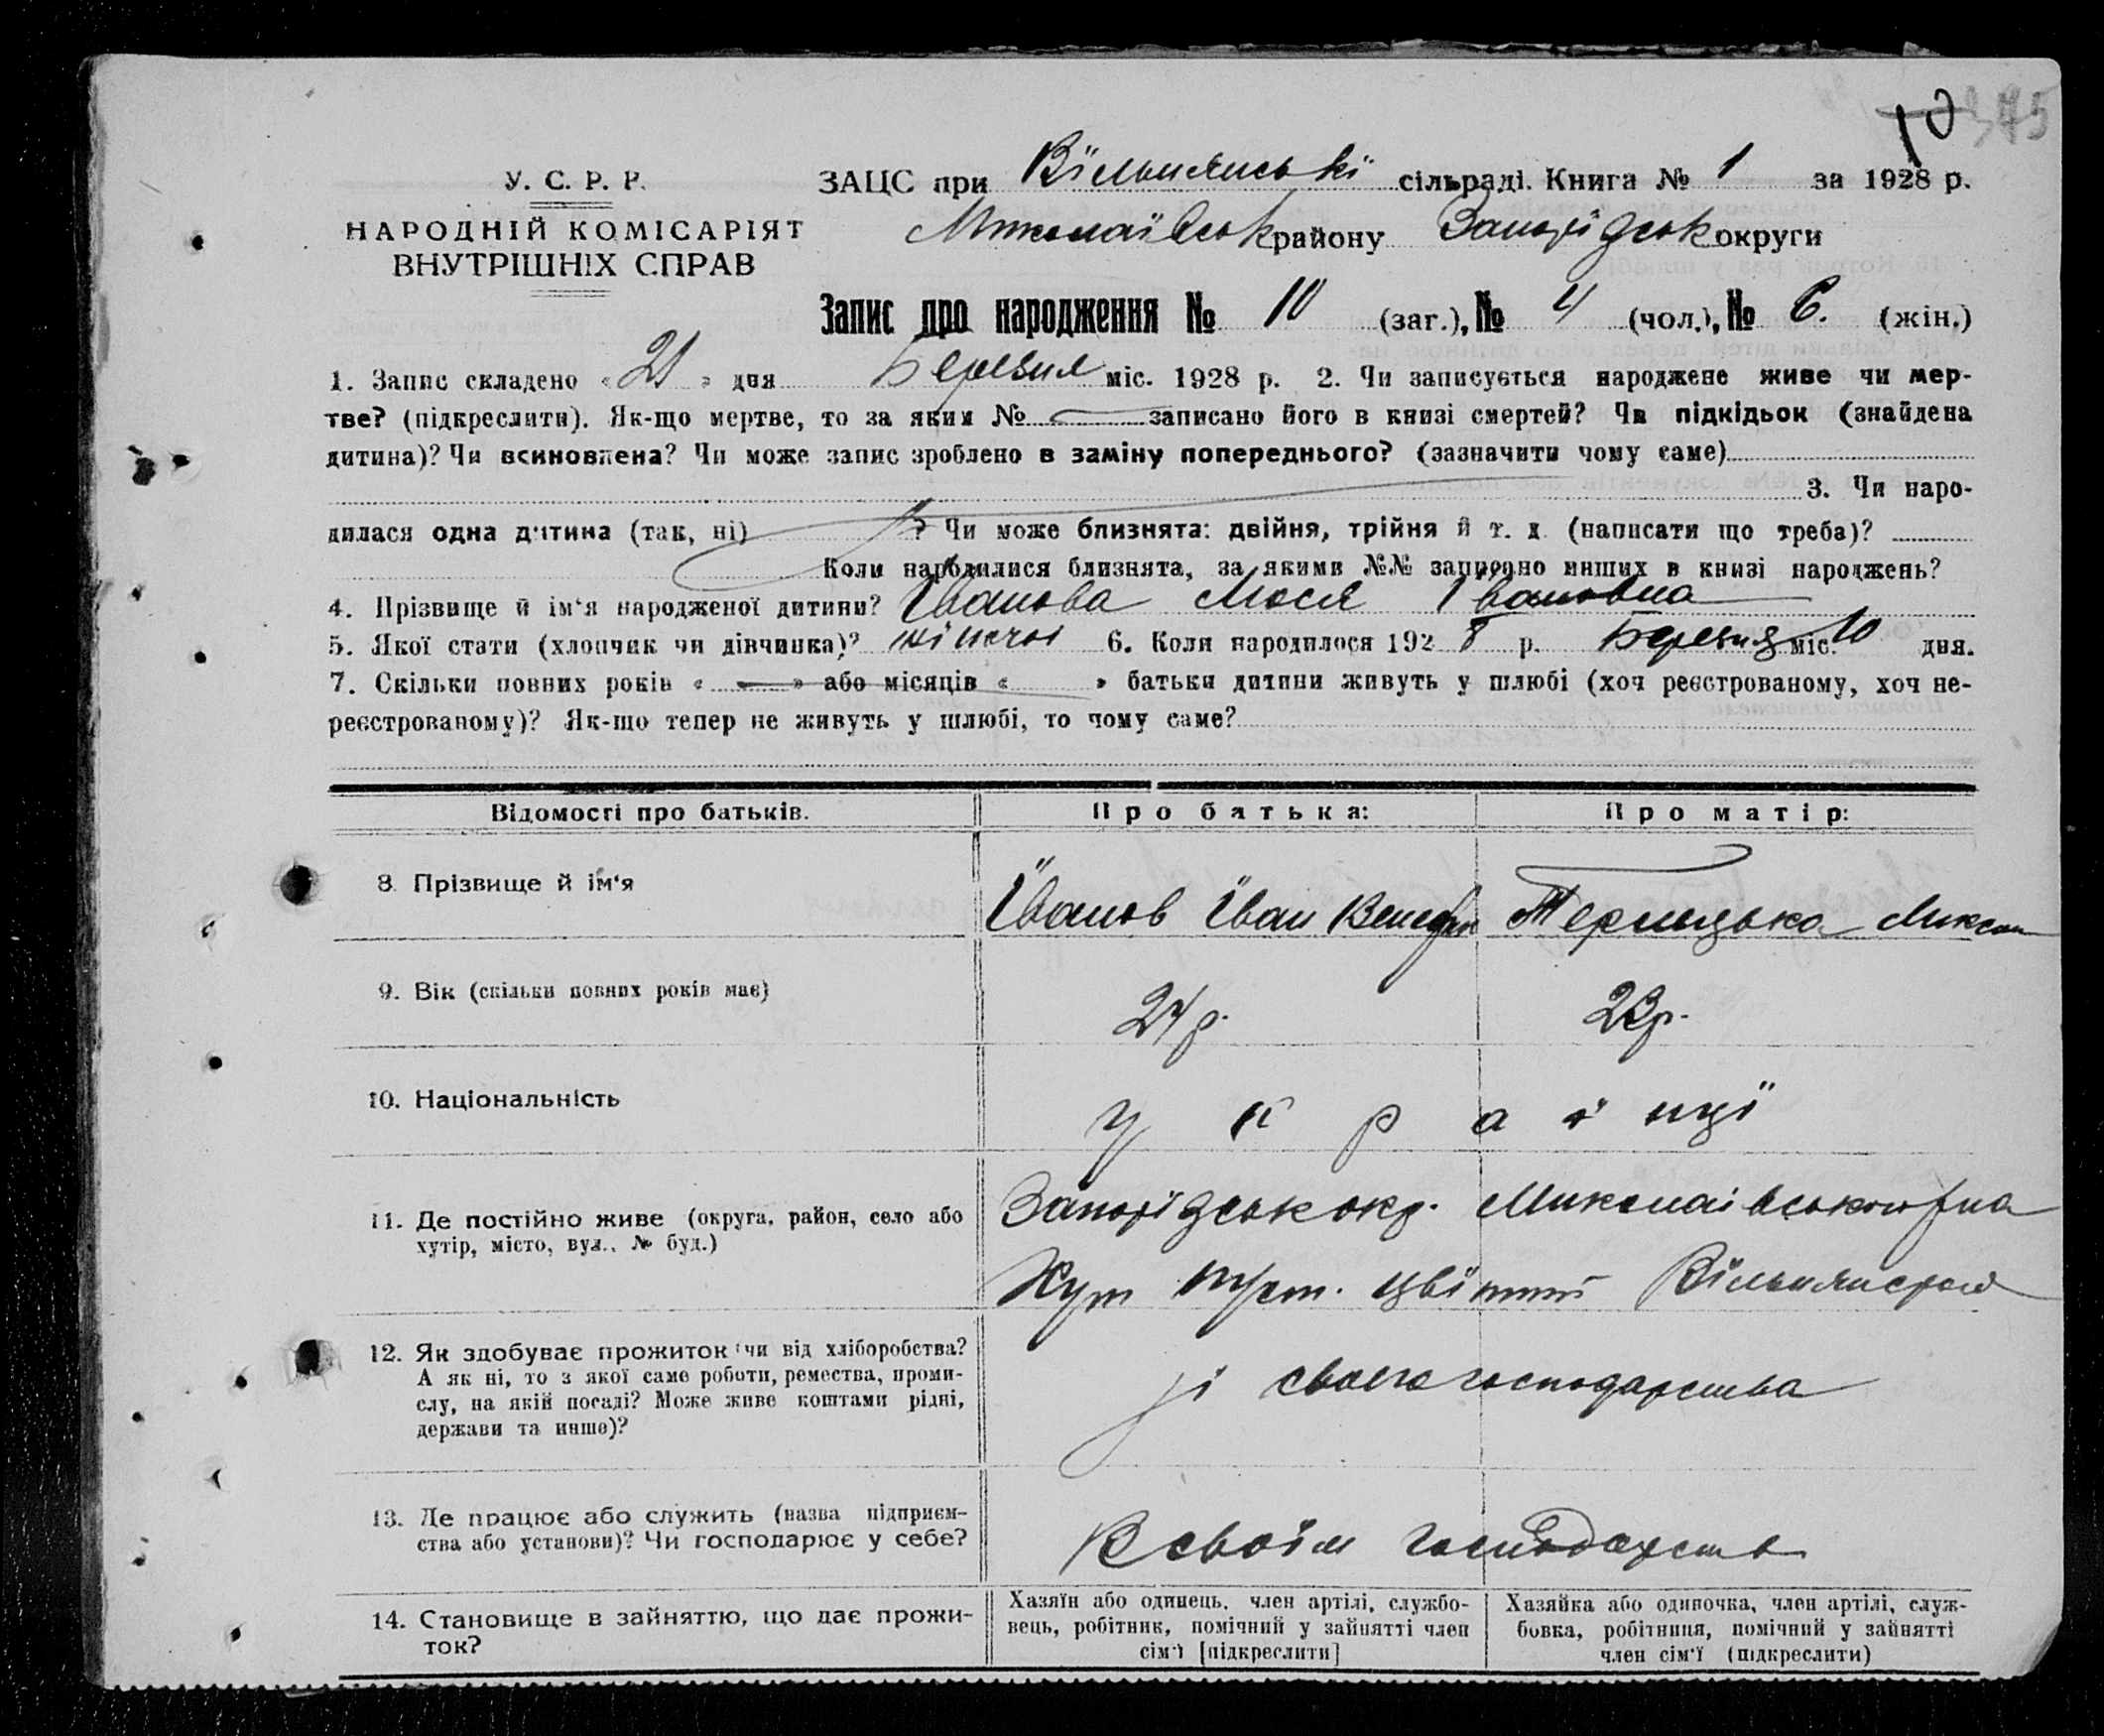 10 375
У. С. Р. Р.
НАРОДНІЙ КОМІСАРІЯТ
ВНУТРІШНІХ СПРАВ
ЗАЦС при Вїльнянські сільраді. Книга № 1 за 1928 р.
Миколаївськ району Запорїдськ округи
Запис про народження № 10 (заг.), № 4 (чол.), № 6. (жін.)
1. Запис складено « 21 » дня Березня міс. 1928 р. 2. Чи записується народжене живе чи мер-
тве? (підкреслити). Як-що мертве, то за яким № записано його в книзі смертей? Чи підкідьок (знайдена
дитина)? Чи всиновлена? Чи може запис зроблено в заміну попереднього? (зазначити чому саме)
3. Чи наро-
дилася одна дитина (так, ні) ? Чи може близнята: двійня, трійня й т. д. (написати що треба)?
Коли народилися близнята, за якими №№ записано инших в книзі народжень?
4. Прізвище й ім‘я народженої дитини? Іванова Мося Івановна
5. Якої стати (хлопчик чи дівчинка)? жіночої 6. Коли народилося 1928 р. Березня міс. 10 дня.
7. Скільки повних років « — » або місяців « » батьки дитини живуть у шлюбі (хоч реєстрованому, хоч не-
реєстрованому)? Як-що тепер не живуть у шлюбі, то чому саме?
Відомості про батьків. Про батька: Про матір:
8. Прізвище й ім‘я Їванов Їван Терницька
9. Вік (скільки повних років має) 24 р. 23 р.
10. Національність украінцї
11. Де постійно живе (округа, район, село або
хутір, місто, вул., № буд.)
Запорїдськ окр. Миколаівського р-на
Хут
12. Як здобуває прожиток (чи від хліборобства?
А як ні, то з якої саме роботи, ремества, проми-
слу, на якій посаді? Може живе коштами рідні,
держави та инше)?
зі свого господарства
13. Де працює або служить (назва підприєм-
ства або установи)? Чи господарює у себе?
В своїм господарств
14. Становище в зайняттю, що дає прожи-
ток?
Хазяїн або одинець, член артілі, службо-
вець, робітник, помічний у зайнятті член
сім‘ї [підкреслити]
Хазяйка або одиночка, член артілі, служ-
бовка, робітниця, помічний у зайнятті
член сім‘ї (підкреслити)